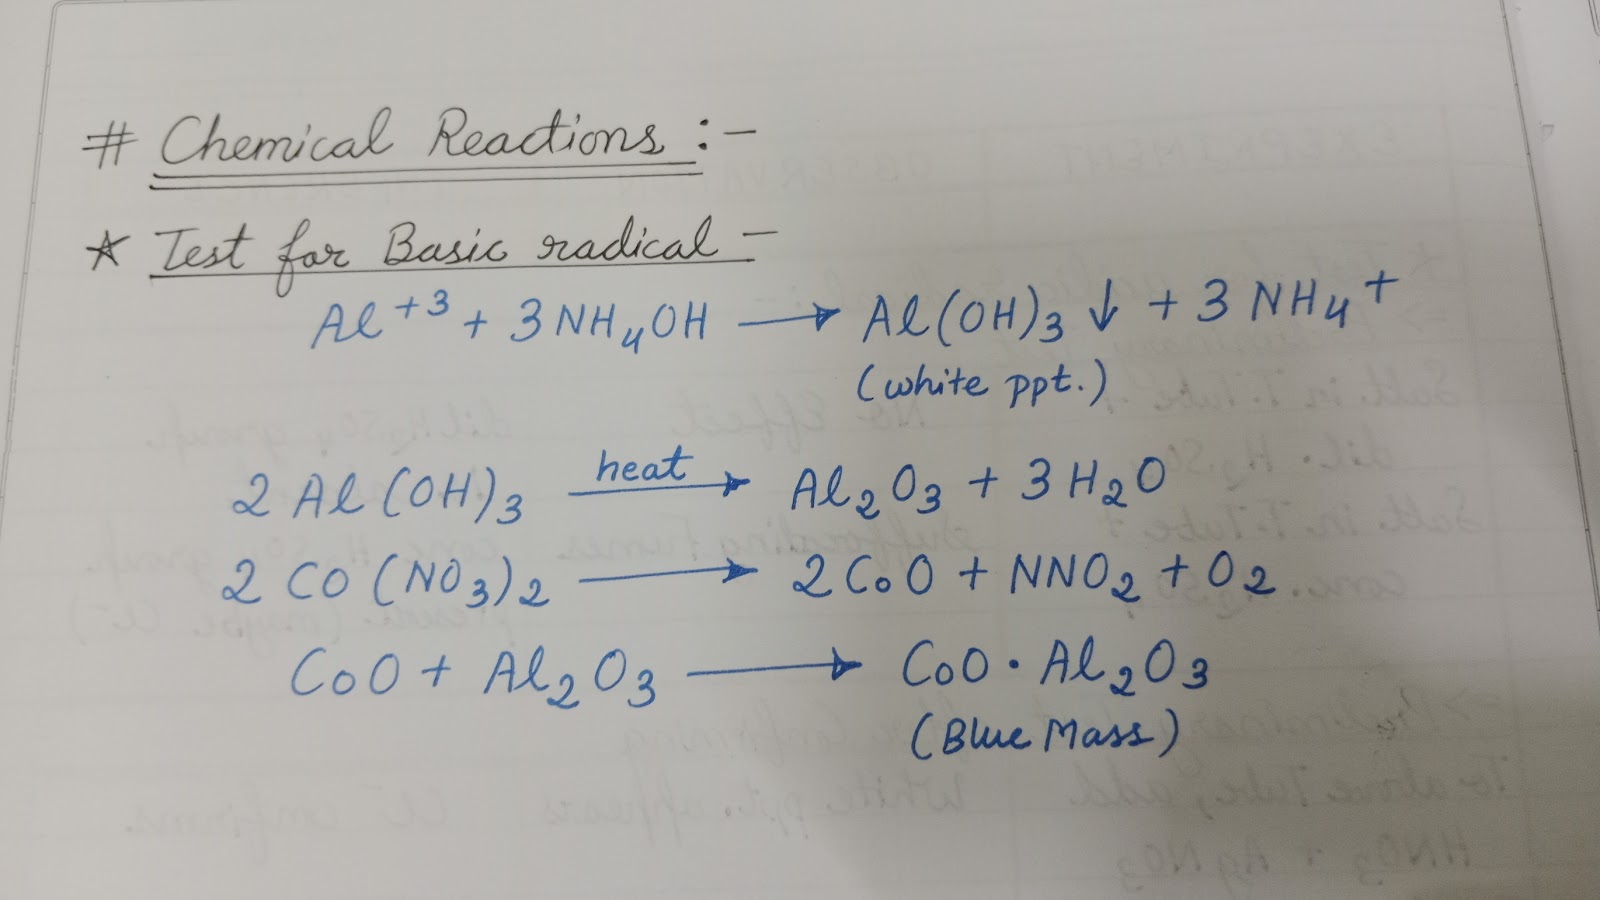 # Chemical Reactions :-
★ Test for Basic radical -
Al⁺³ + 3NH₄OH → Al(OH)₃ ↓ + 3NH₄⁺
(white ppt.)
2Al(OH)₃ heat → Al₂O₃ + 3H₂O
2CO(NO₃)₂ → 2CoO + NNO₂ + O₂
CoO + Al₂O₃ → CoO · Al₂O₃
(Blue Mass)